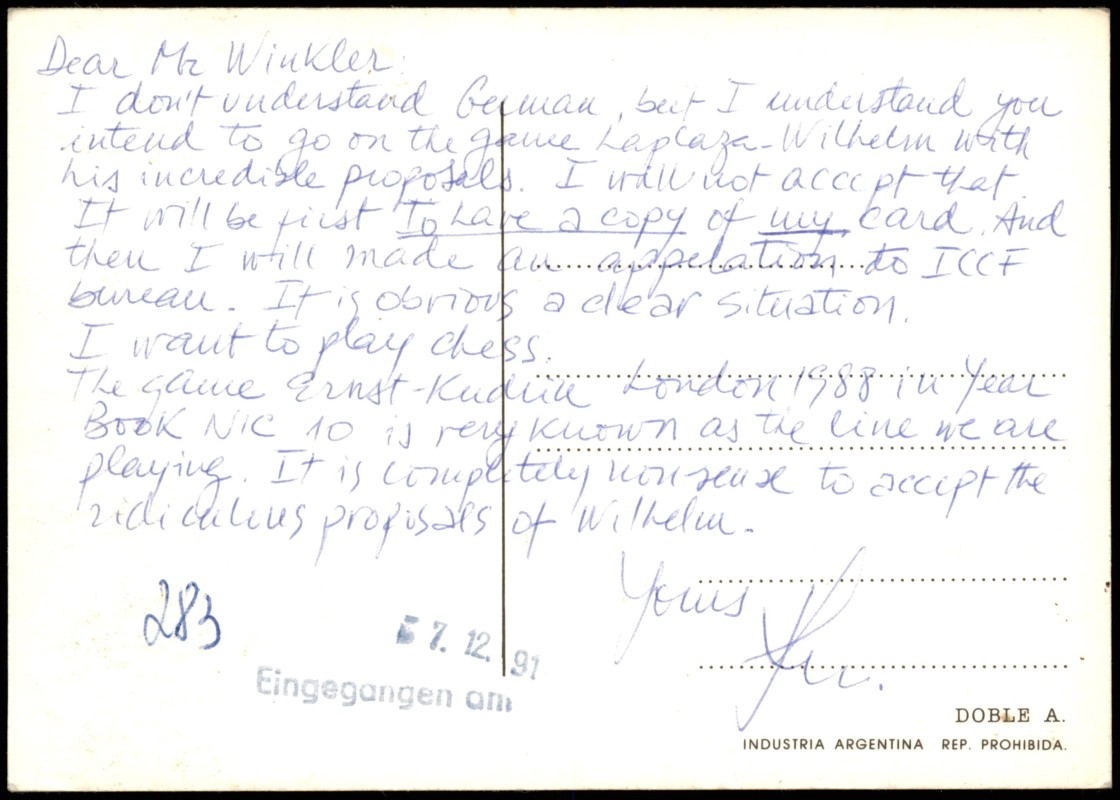 Dear Mr Winkler:
I don't understand German, but I understand you
intend to go on the game Laplaza-Wilhelm with
his incredible proposals. I will not accept that.
It will be first To have a copy of my card. And
then I will made an appelation to ICCF
bureau. It is obvious a clear situation.
I want to play chess.
The game Ernst-Kudrin London 1988 in Year
Book NIC 10 is very known as the line we are
playing. It is completely nonsense to accept the
ridiculus proposals of Wilhelm.
Yours
283
7. 12. 91
Eingegangen am
DOBLE A.
INDUSTRIA ARGENTINA REP. PROHIBIDA.